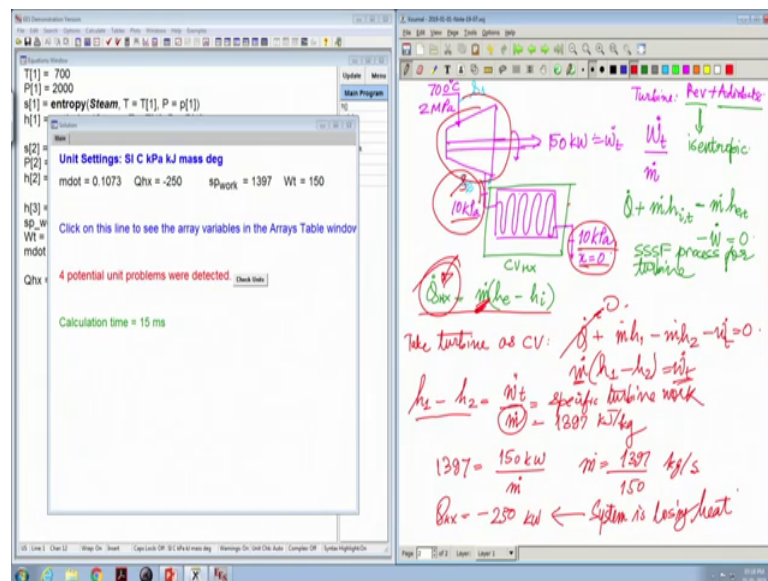 EES Demonstration Version
File Edit Search Options Calculate Tables Plots Windows Help Examples
Equations Window
T[1] = 700
P[1] = 2000
s[1] = entropy(Steam, T = T[1], P = p[1])
h[1]
s[2]
P[2]
h[2] =
h[3] =
sp_w
Wt =
mdot
Qhx =
Update Menu
Main Program
Solution
Main
Unit Settings: SI C kPa kJ mass deg
mdot = 0.1073 Qhx = -250 sp_work = 1397 Wt = 150
Click on this line to see the array variables in the Arrays Table window
4 potential unit problems were detected. Check Units
Calculation time = 15 ms
US Line 1 Char 12 Wrap On Insert Caps Lock Off SI C kPa kJ mass deg Warnings: On Unit Chk: Auto Complex Off Syntax Highlight On
File Edit View Page Tools Options Help
700°C
2 MPa
h1
150 kW = Ẇt
10 kPa
CVHX
10 kPa
x=0
Turbine: Rev + Adiabatic
isentropic
Ẇt
ṁ
Q̇ + ṁhi,t - ṁhe,t
- Ẇ = 0
SSSF process for
turbine
Q̇HX = ṁ(he - hi)
Take turbine as CV: Q̇ + ṁh1 - ṁh2 - Ẇt = 0
0
ṁ(h1 - h2) = Ẇt
h1 - h2 = Ẇt/ṁ = specific turbine work
= 1397 kJ/kg
1397 = 150 kW/ṁ ṁ = 1397/150 kg/s
Q̇HX = -250 kW ← System is losing heat
Page 2 of 2 Layer: Layer 1